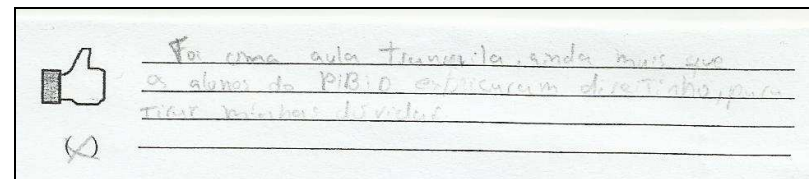 Foi uma aula tranquila, ainda mais que
os alunos do PIBID explicaram direitinho, para
tirar minhas dúvidas
(X)